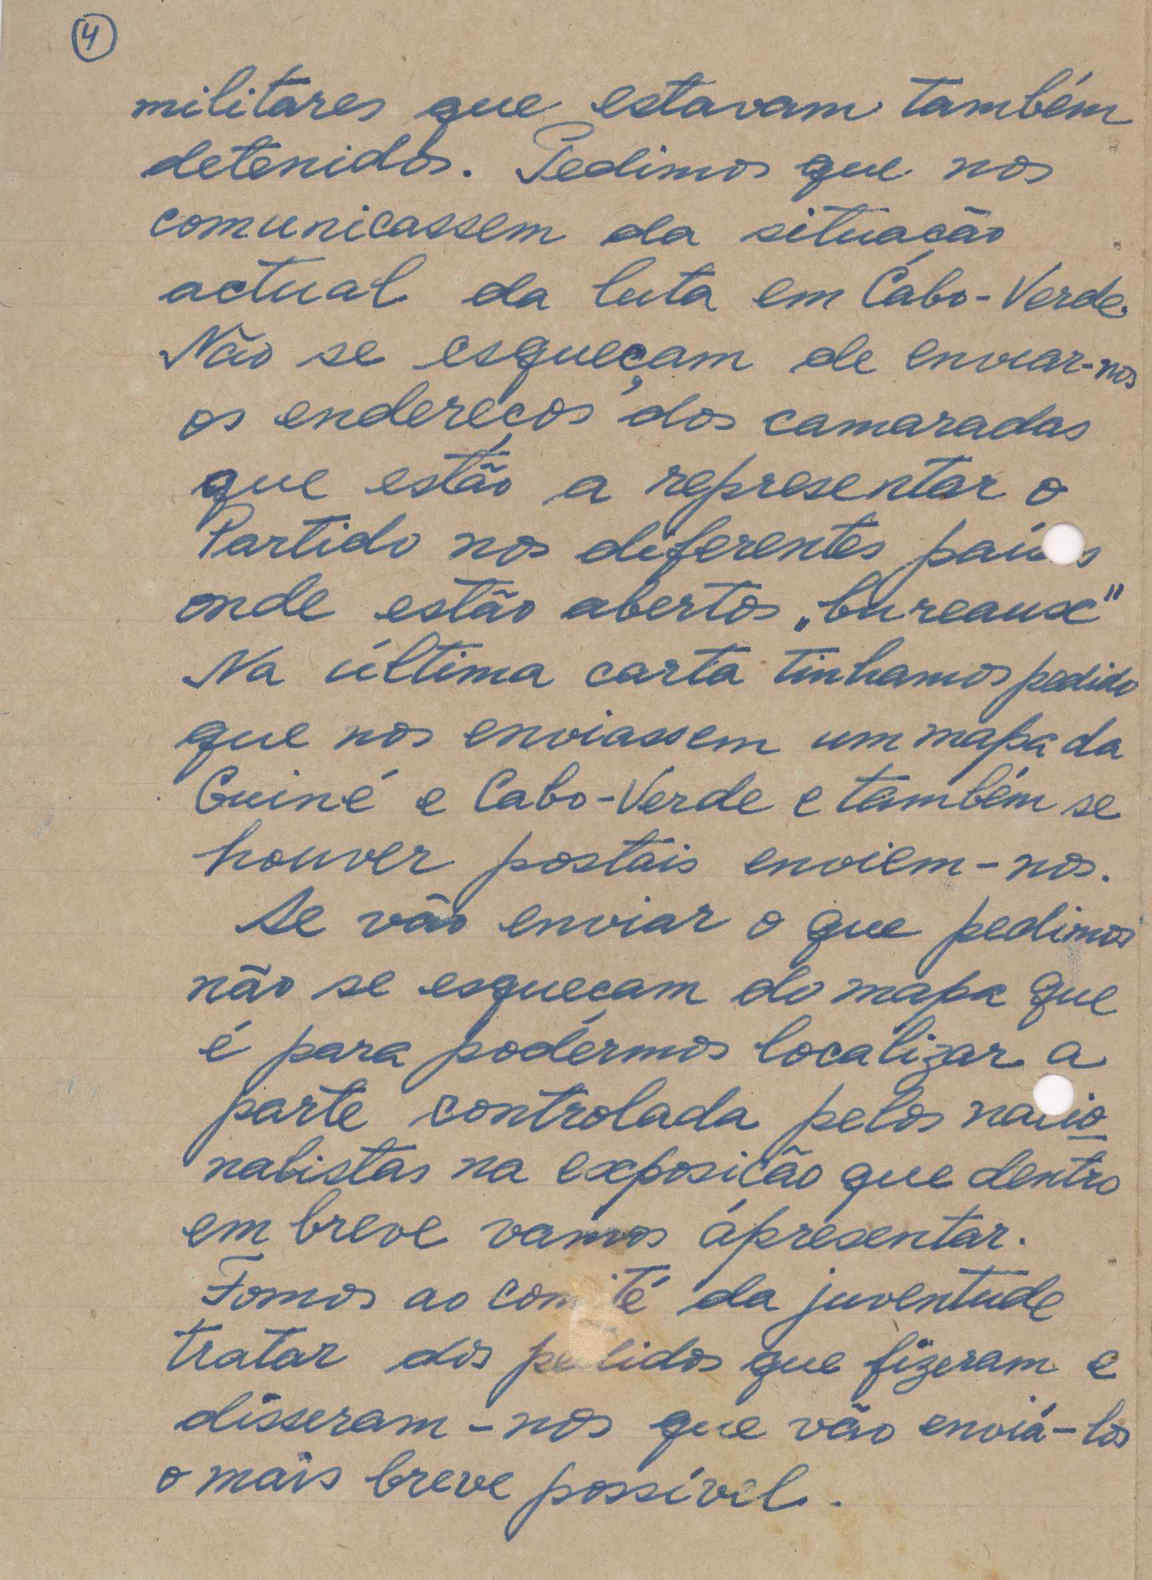 4
militares que estavam também
detenidos. Pedimos que nos
comunicassem da situação
actual da luta em Cábo-Verde.
Não se esqueçam de enviar-nos
os endereços dos camaradas
que estão a representar o
Partido nos diferentes países
onde estão abertos „bureaux"
Na última carta tinhamos pedido
que nos enviassem um mapa da
Guiné e Cabo-Verde e também se
houver postais enviem-nos.
Se vão enviar o que pedimos
não se esqueçam do mapa que
é para podérmos localizar a
parte controlada pelos nacio
nalistas na exposição que dentro
em breve vamos ápresentar.
Fomos ao comité da juventude
tratar dos pedidos que fizeram e
disseram-nos que vão enviá-los
o mais breve possível.